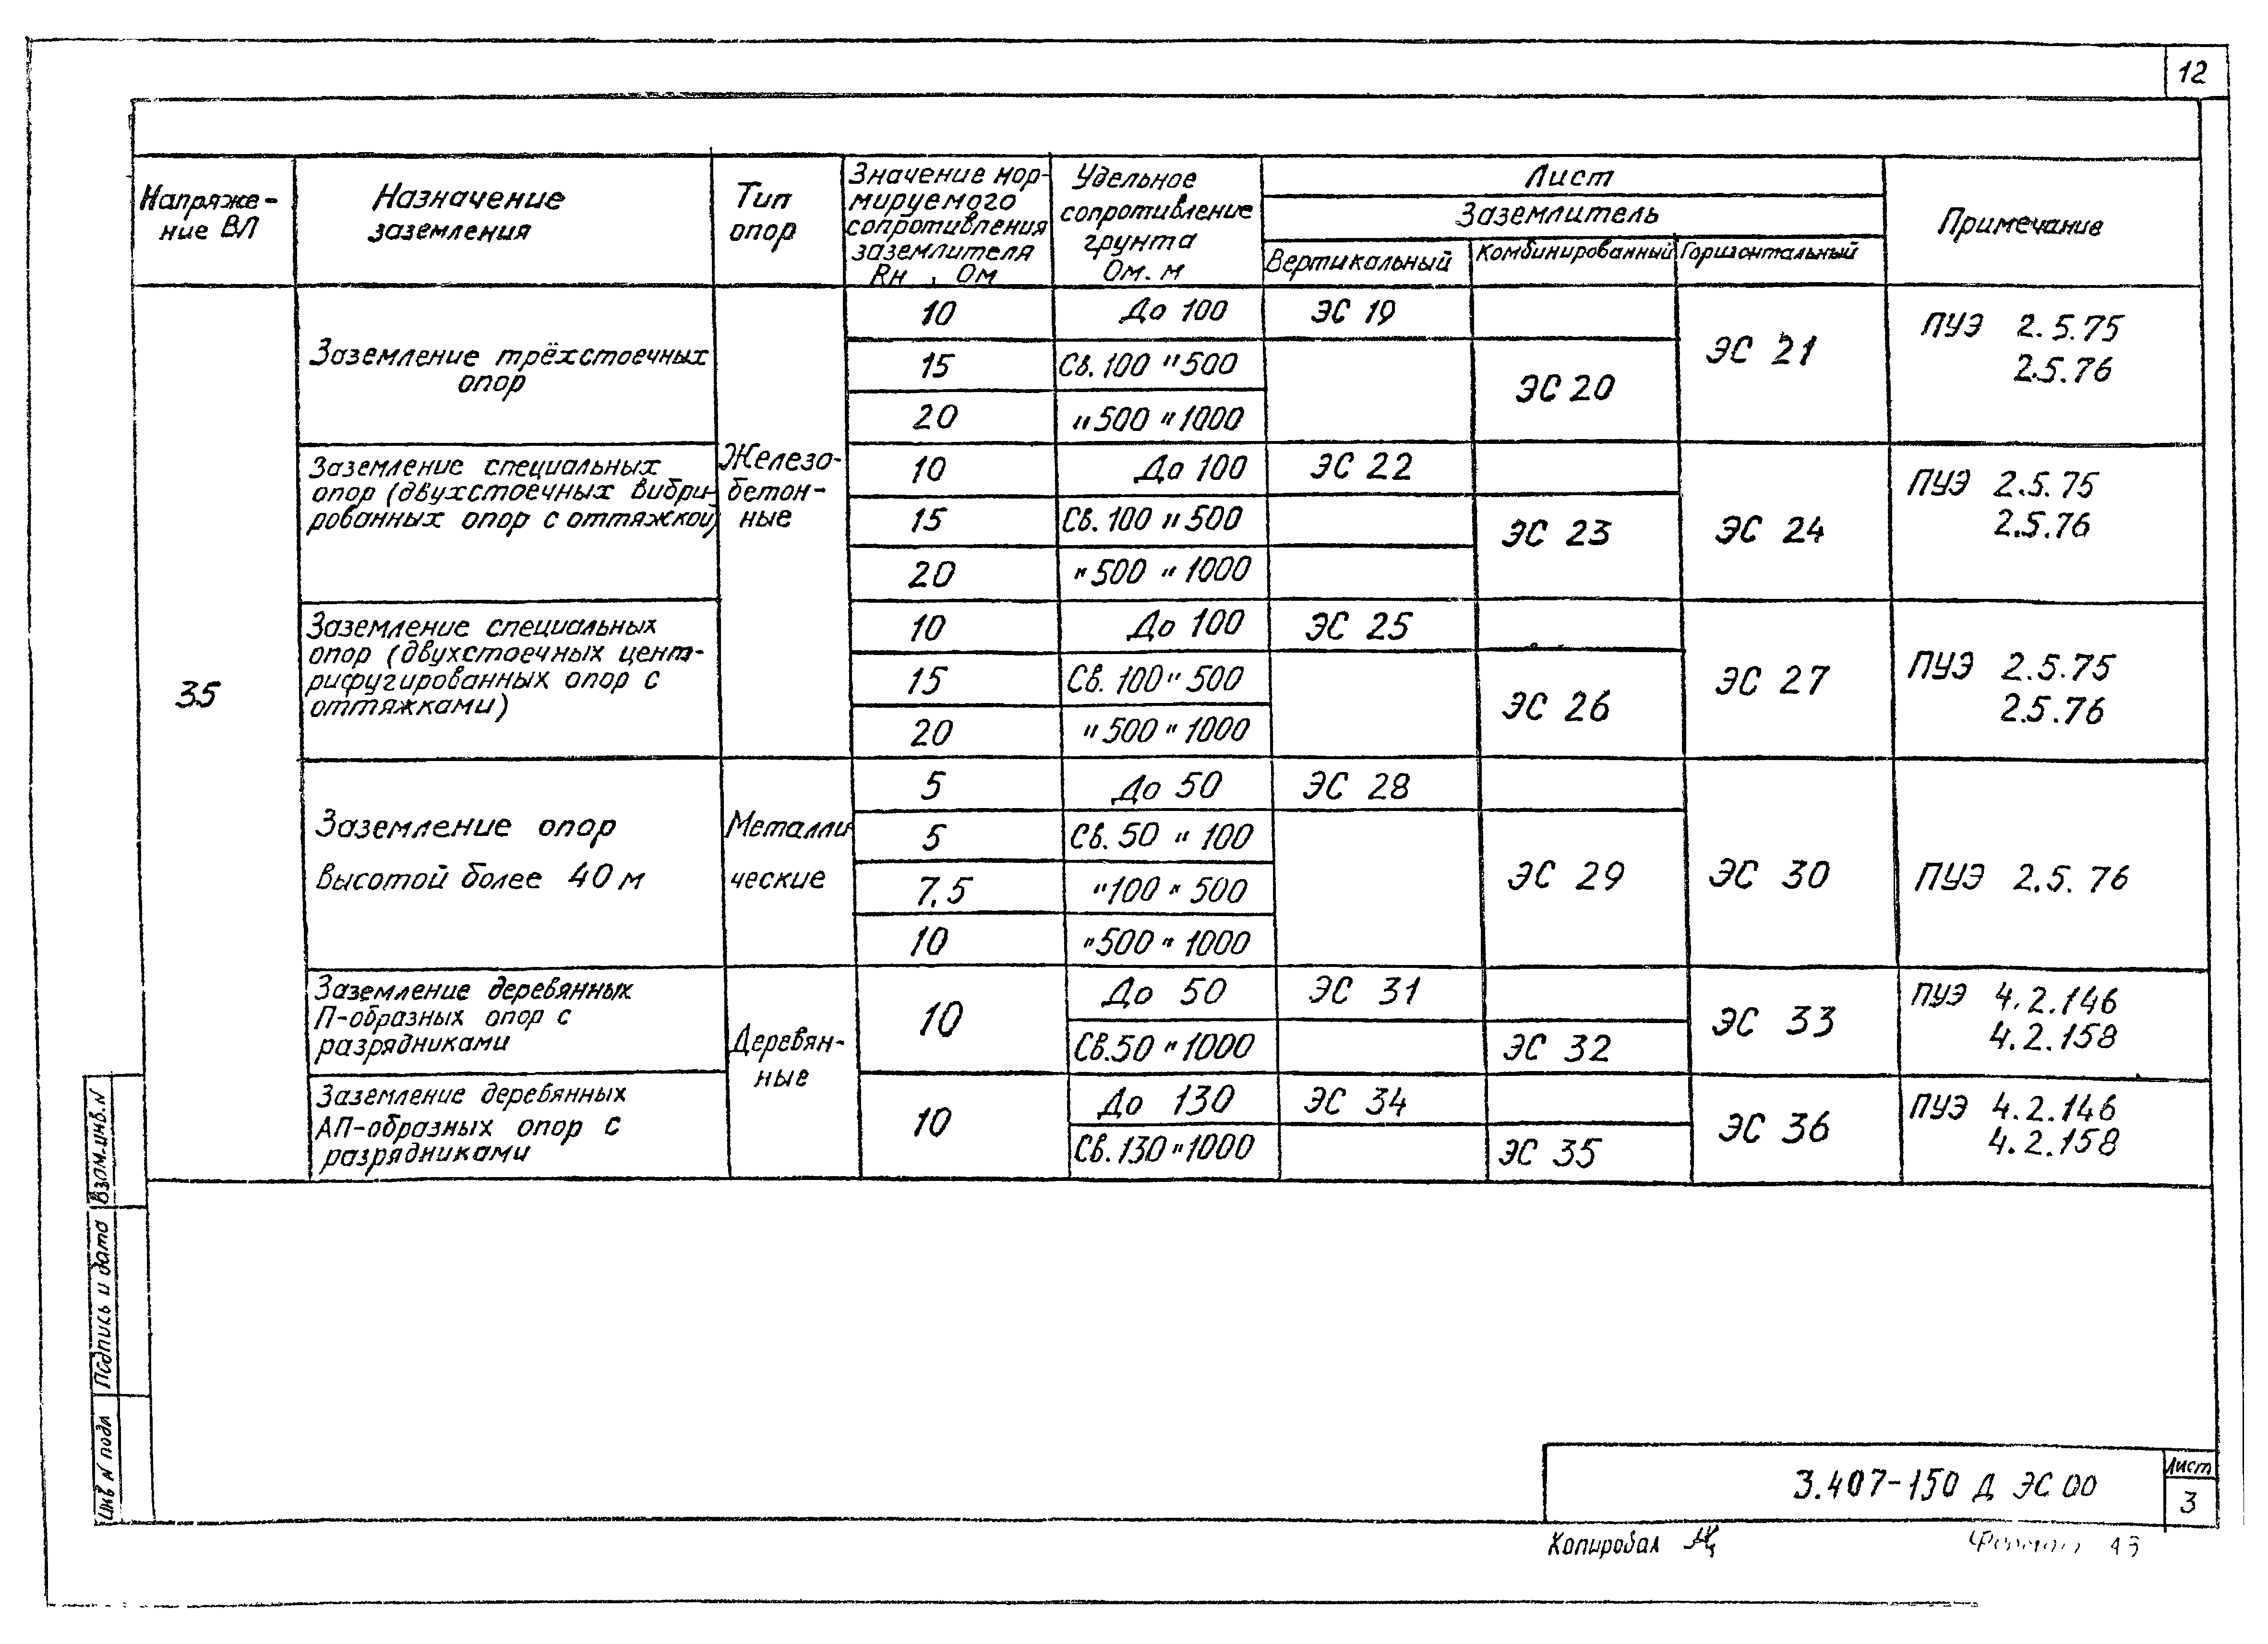 12
Напряже-
ние ВЛ
Назначение
заземления
Тип
опор
Значение нор-
мируемого
сопротивления
заземлителя
Rн , Ом
Удельное
сопротивление
грунта
Ом. м
Лист
Заземлитель
Вертикальный
Комбинированный
Горизонтальный
Примечание
35
Заземление трёхстоечных
опор
Железо-
бетон-
ные
10
До 100
ЭС 19
ЭС 21
ПУЭ 2.5.75
2.5.76
15
Св. 100 " 500
ЭС 20
20
" 500 " 1000
Заземление специальных
опор (двухстоечных вибри-
рованных опор с оттяжкой)
10
До 100
ЭС 22
ЭС 24
ПУЭ 2.5.75
2.5.76
15
Св. 100 " 500
ЭС 23
20
" 500 " 1000
Заземление специальных
опор (двухстоечных цент-
рифугированных опор с
оттяжками)
10
До 100
ЭС 25
ЭС 27
ПУЭ 2.5.75
2.5.76
15
Св. 100 " 500
ЭС 26
20
" 500 " 1000
Заземление опор
высотой более 40 м
Металли
ческие
5
До 50
ЭС 28
ЭС 30
ПУЭ 2.5.76
5
Св. 50 " 100
ЭС 29
7.5
" 100 " 500
10
" 500 " 1000
Заземление деревянных
П-образных опор с
разрядниками
Деревян-
ные
10
До 50
ЭС 31
ЭС 33
ПУЭ 4.2.146
4.2.158
Св. 50 " 1000
ЭС 32
Заземление деревянных
АП-образных опор с
разрядниками
10
До 130
ЭС 34
ЭС 36
ПУЭ 4.2.146
4.2.158
Св. 130 " 1000
ЭС 35
Взам.инв.N
Подпись и дата
Инв N подл
3.407-150 Д ЭС 00
Лист
3
Копировал
Формат А3